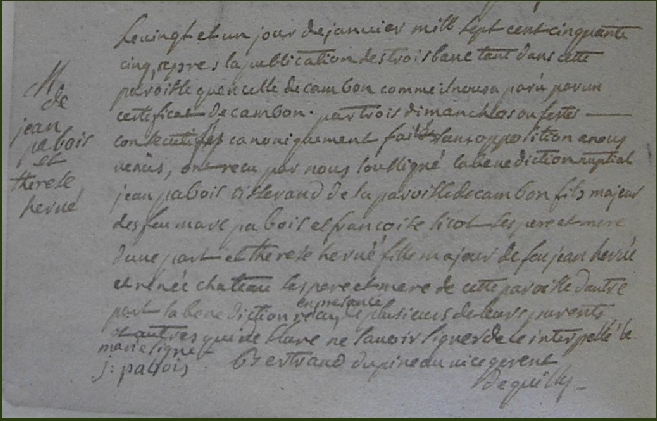 M
de
jean
pabois
et
therese
hervé
Le vingt et un jour de janvier mill sept cent cinquante
cinq, apres la publication des trois banc tant dans cette
paroisse que celle de cambon comme il nous a paru par un
certificat de cambon. par trois dimanches ou festes
consecutifes canoniquement faites sans opposition a nous
venüs, ont recu par nous soussigné la benediction nuptial
jean pabois tisserand de la paroisse de cambon fils majeur
des feu marc pabois et francoise licot ses pere et mere
d'une part et therese hervé fille majour de feu jean hervé
et renée chateau ses pere et mere de cette paroisse d'autre
part la benediction recüe en presance de plusieurs de leurs parents
et autres qui declare ne savoir signer de ce interpellé le
marié signe
j: pabois Bertrand dupineau vice gerent
De quilly